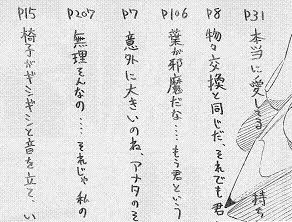 P31 本当に愛してる 持ち
P8 物々交換と同じだ、それでも君
P106 葉が邪魔だな……もう君という
P7 意外に大きいのね、アナタのそ
P207 無理そんなの……それじゃ私の
P15 椅子がギシギシと音を立て、い